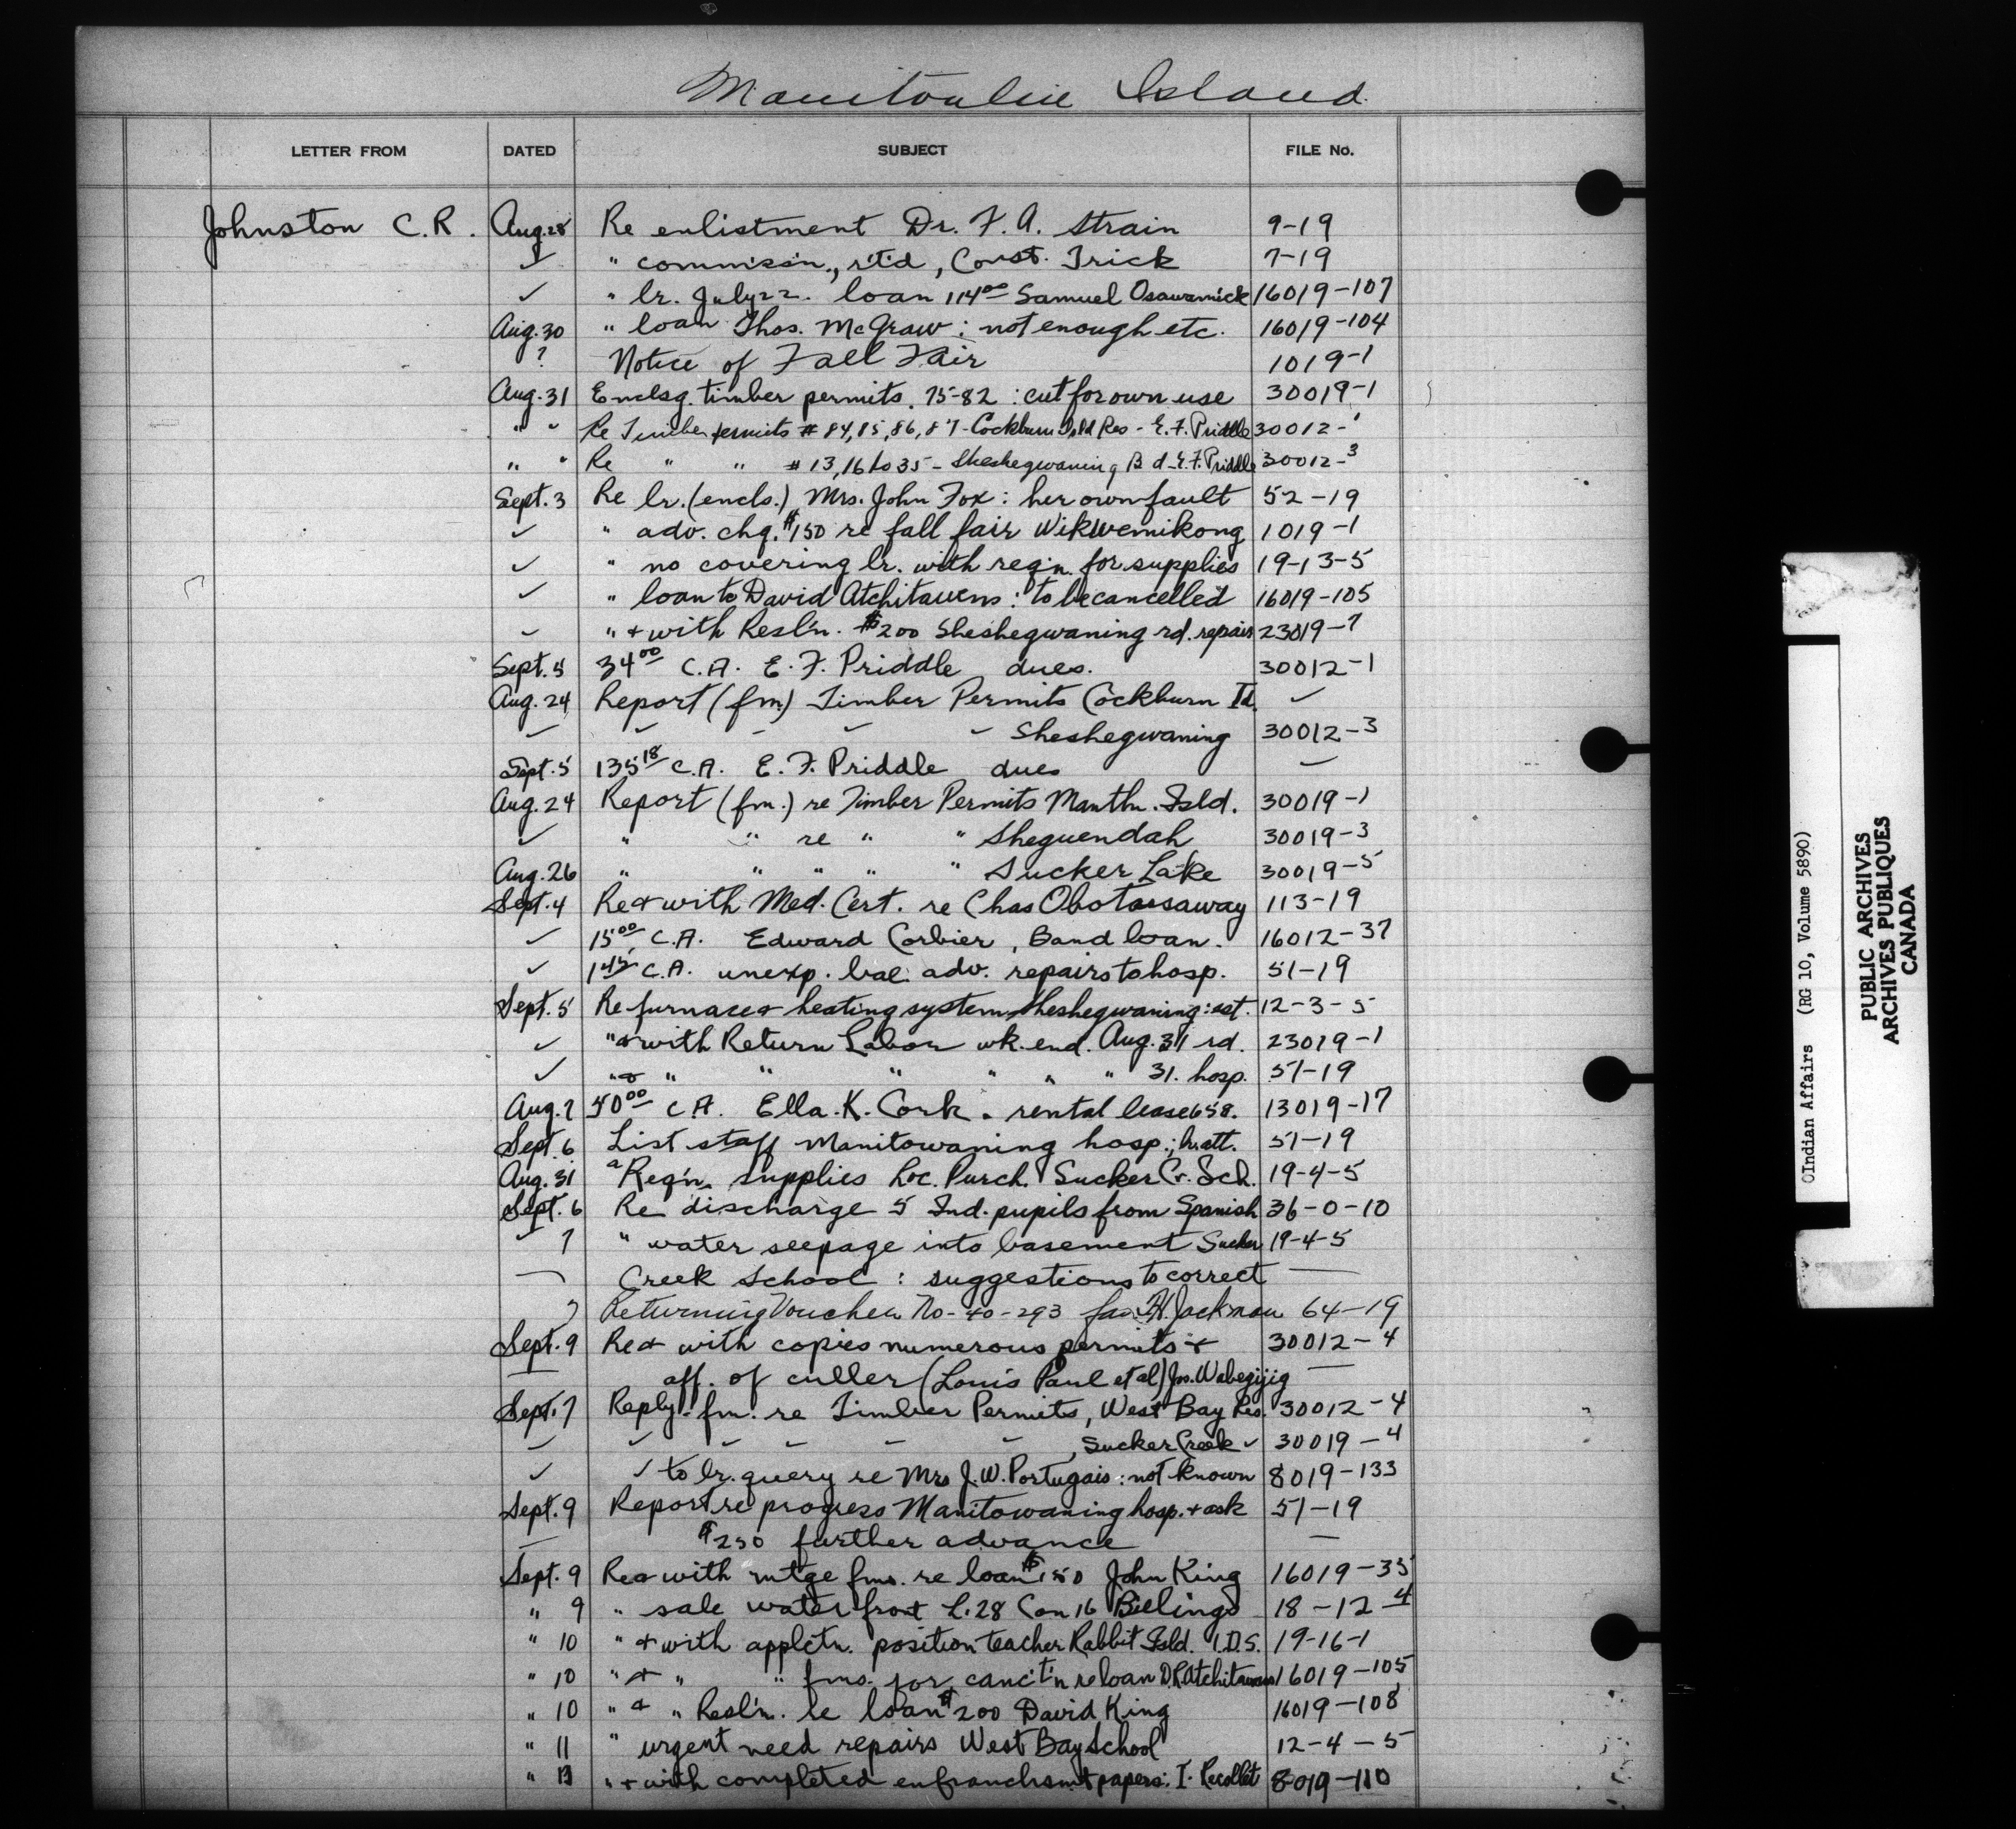 Manitoulin Island.
LETTER FROM DATED SUBJECT FILE No.
Johnston C.R. Aug. 28 Re enlistment Dr. F. A. Strain 9-19
✓ " commissn., r't'd, Const. Trick 7-19
✓ " lr. July 22. loan 114.00 Samuel Osawamick 16019-107
Aug. 30 " loan Thos. McGraw : not enough etc. 16019-104
? Notice of Fall Fair 1019-1
Aug. 31 Enclsg. timber permits. 75-82 : cut for own use 30019-1
" " Re Timber permits # 84, 85, 86, 87 - Cockburn Isld Res - E. F. Priddle 30012-1
" " Re " " # 13, 16 to 35 - Sheshegwaning B d - E. F. Priddle 30012-3
Sept. 3 Re lr. (encls.) Mrs. John Fox : her own fault 52-19
✓ " adv. chq. $150 re fall fair Wikwemikong 1019-1
✓ " no covering lr. with reqn. for supplies 19-13-5
✓ " loan to David Atchitawens : to be cancelled 16019-105
✓ " + with Resl'n. $200 Sheshegwaning rd. repair 23019-7
Sept. 5 34.00 C.A. E. F. Priddle dues. 30012-1
Aug. 24 Report (fm.) Timber Permits Cockburn Id. ✓
✓ ✓ - ✓ ✓ Sheshegwaning 30012-3
Sept. 5 135.18 C.A. E. F. Priddle dues —
Aug. 24 Report (fm.) re Timber Permits Mantln. Isld. 30019-1
✓ " " re " " Sheguendah 30019-3
Aug. 26 " " " " " Sucker Lake 30019-5
Sept. 4 Re + with Med. Cert. re Chas Obotassaway 113-19
✓ 15.00 C.A. Edward Corbier, Band loan. 16012-37
✓ 1.45 C.A. unexp. bal. adv. repairs to hosp. 51-19
Sept. 5 Re furnace + heating system Sheshegwaning : est. 12-3-5
✓ " + with Return Labor wk. end. Aug. 31 rd. 23019-1
✓ " + " " " " " " 31. hosp. 51-19
Aug. 7 50.00 C.A. Ella. K. Cork. rental lease 658. 13019-17
Sept. 6 List staff Manitowaning hosp.; lr. att. 51-19
Aug. 31 a Reqn. supplies Loc. Purch. Sucker Cr. Sch. 19-4-5
Sept. 6 Re discharge 5 Ind. pupils from Spanish 36-0-10
✓ 7 " water seepage into basement Sucker 19-4-5
— Creek School : suggestions to correct —
7 Returning Voucher No-40-293 H. Jackman 64-19
Sept. 9 Re + with copies numerous permits + 30012-4
— aff. of culler (Louis Paul et al) Jos. Wabegijig —
Sept. 7 Reply - fm. re Timber Permits, West Bay Res. 30012-4
✓ ✓ ✓ - - ✓ , Sucker Creek ✓ 30019-4
✓ ✓ to lr. query re Mrs J. W. Portugais : not known 8019-133
Sept. 9 Report re progress Manitowaning hosp. + ask 51-19
— $250 further advance —
Sept. 9 Re + with mtge fms. re loan $150 John King 16019-35
" 9 " sale water front L. 28 Con 16 Billings 18-12-4
" 10 " + with applctn. position teacher Rabbit Isld. I.D.S. 19-16-1
" 10 " + " " fms. for canc't'n re loan D. Atchitawens 16019-105
" 10 " + " Resl'n. re loan $200 David King 16019-108
" 11 " urgent need repairs West Bay School 12-4-5
" 13 " + with completed enfranchsmt papers : I. Recollet 8019-110
OIndian Affairs (RG 10, Volume 5890)
PUBLIC ARCHIVES
ARCHIVES PUBLIQUES
CANADA